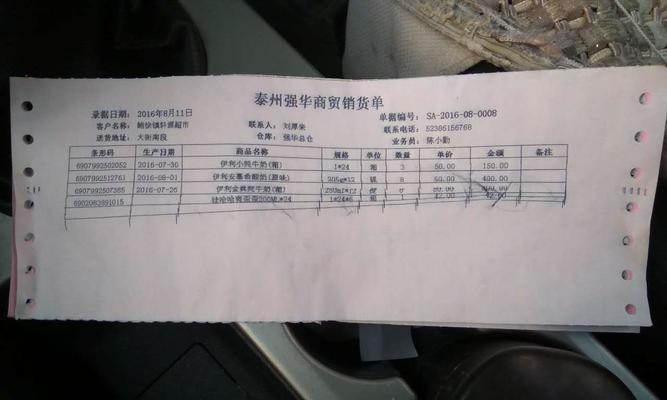 泰州强华商贸销货单
录据日期: 2016年8月11日 单据编号: SA-2016-08-0008
客户名称: 鲍徐镇轩源超市 联系人: 刘厚来 联系电话: 52386156768
送货地址: 大街南段 仓库: 强华总仓 业务员: 陈小勤
条形码 生产日期 商品名称 规格 单位 数量 单价 金额 备注
6907992502052 2016-07-30 伊利小纯牛奶(箱) 1*24 箱 3 50.00 150.00
6907992512761 2016-08-01 伊利安慕希酸奶(原味) 205g*12 提 8 50.00 400.00
6907992507385 2016-07-26 伊利金典纯牛奶(箱) 250ml*12 50.00
6902083891015 娃哈哈爽歪歪200ML*24 1*24*6 1 42.00 42.00